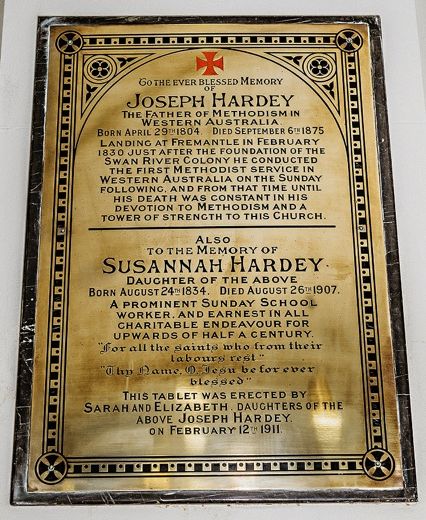 To the ever blessed Memory
of
Joseph Hardey
The Father of Methodism in
Western Australia.
Born April 29th 1804. Died September 6th 1875
Landing at Fremantle in February
1830 just after the foundation of the
Swan River Colony he conducted
the first Methodist service in
Western Australia on the Sunday
following, and from that time until
his death was constant in his
devotion to Methodism and a
tower of strength to this Church.
Also
to the Memory of
Susannah Hardey.
Daughter of the above
Born August 24th 1834. Died August 26th 1907.
A prominent Sunday School
worker, and earnest in all
charitable endeavour for
upwards of half a century.
"For all the saints who from their
labours rest"
"Thy Name, O, Jesu be for ever
blessed"
This tablet was erected by
Sarah and Elizabeth, daughters of the
above Joseph Hardey.
on February 12th 1911.